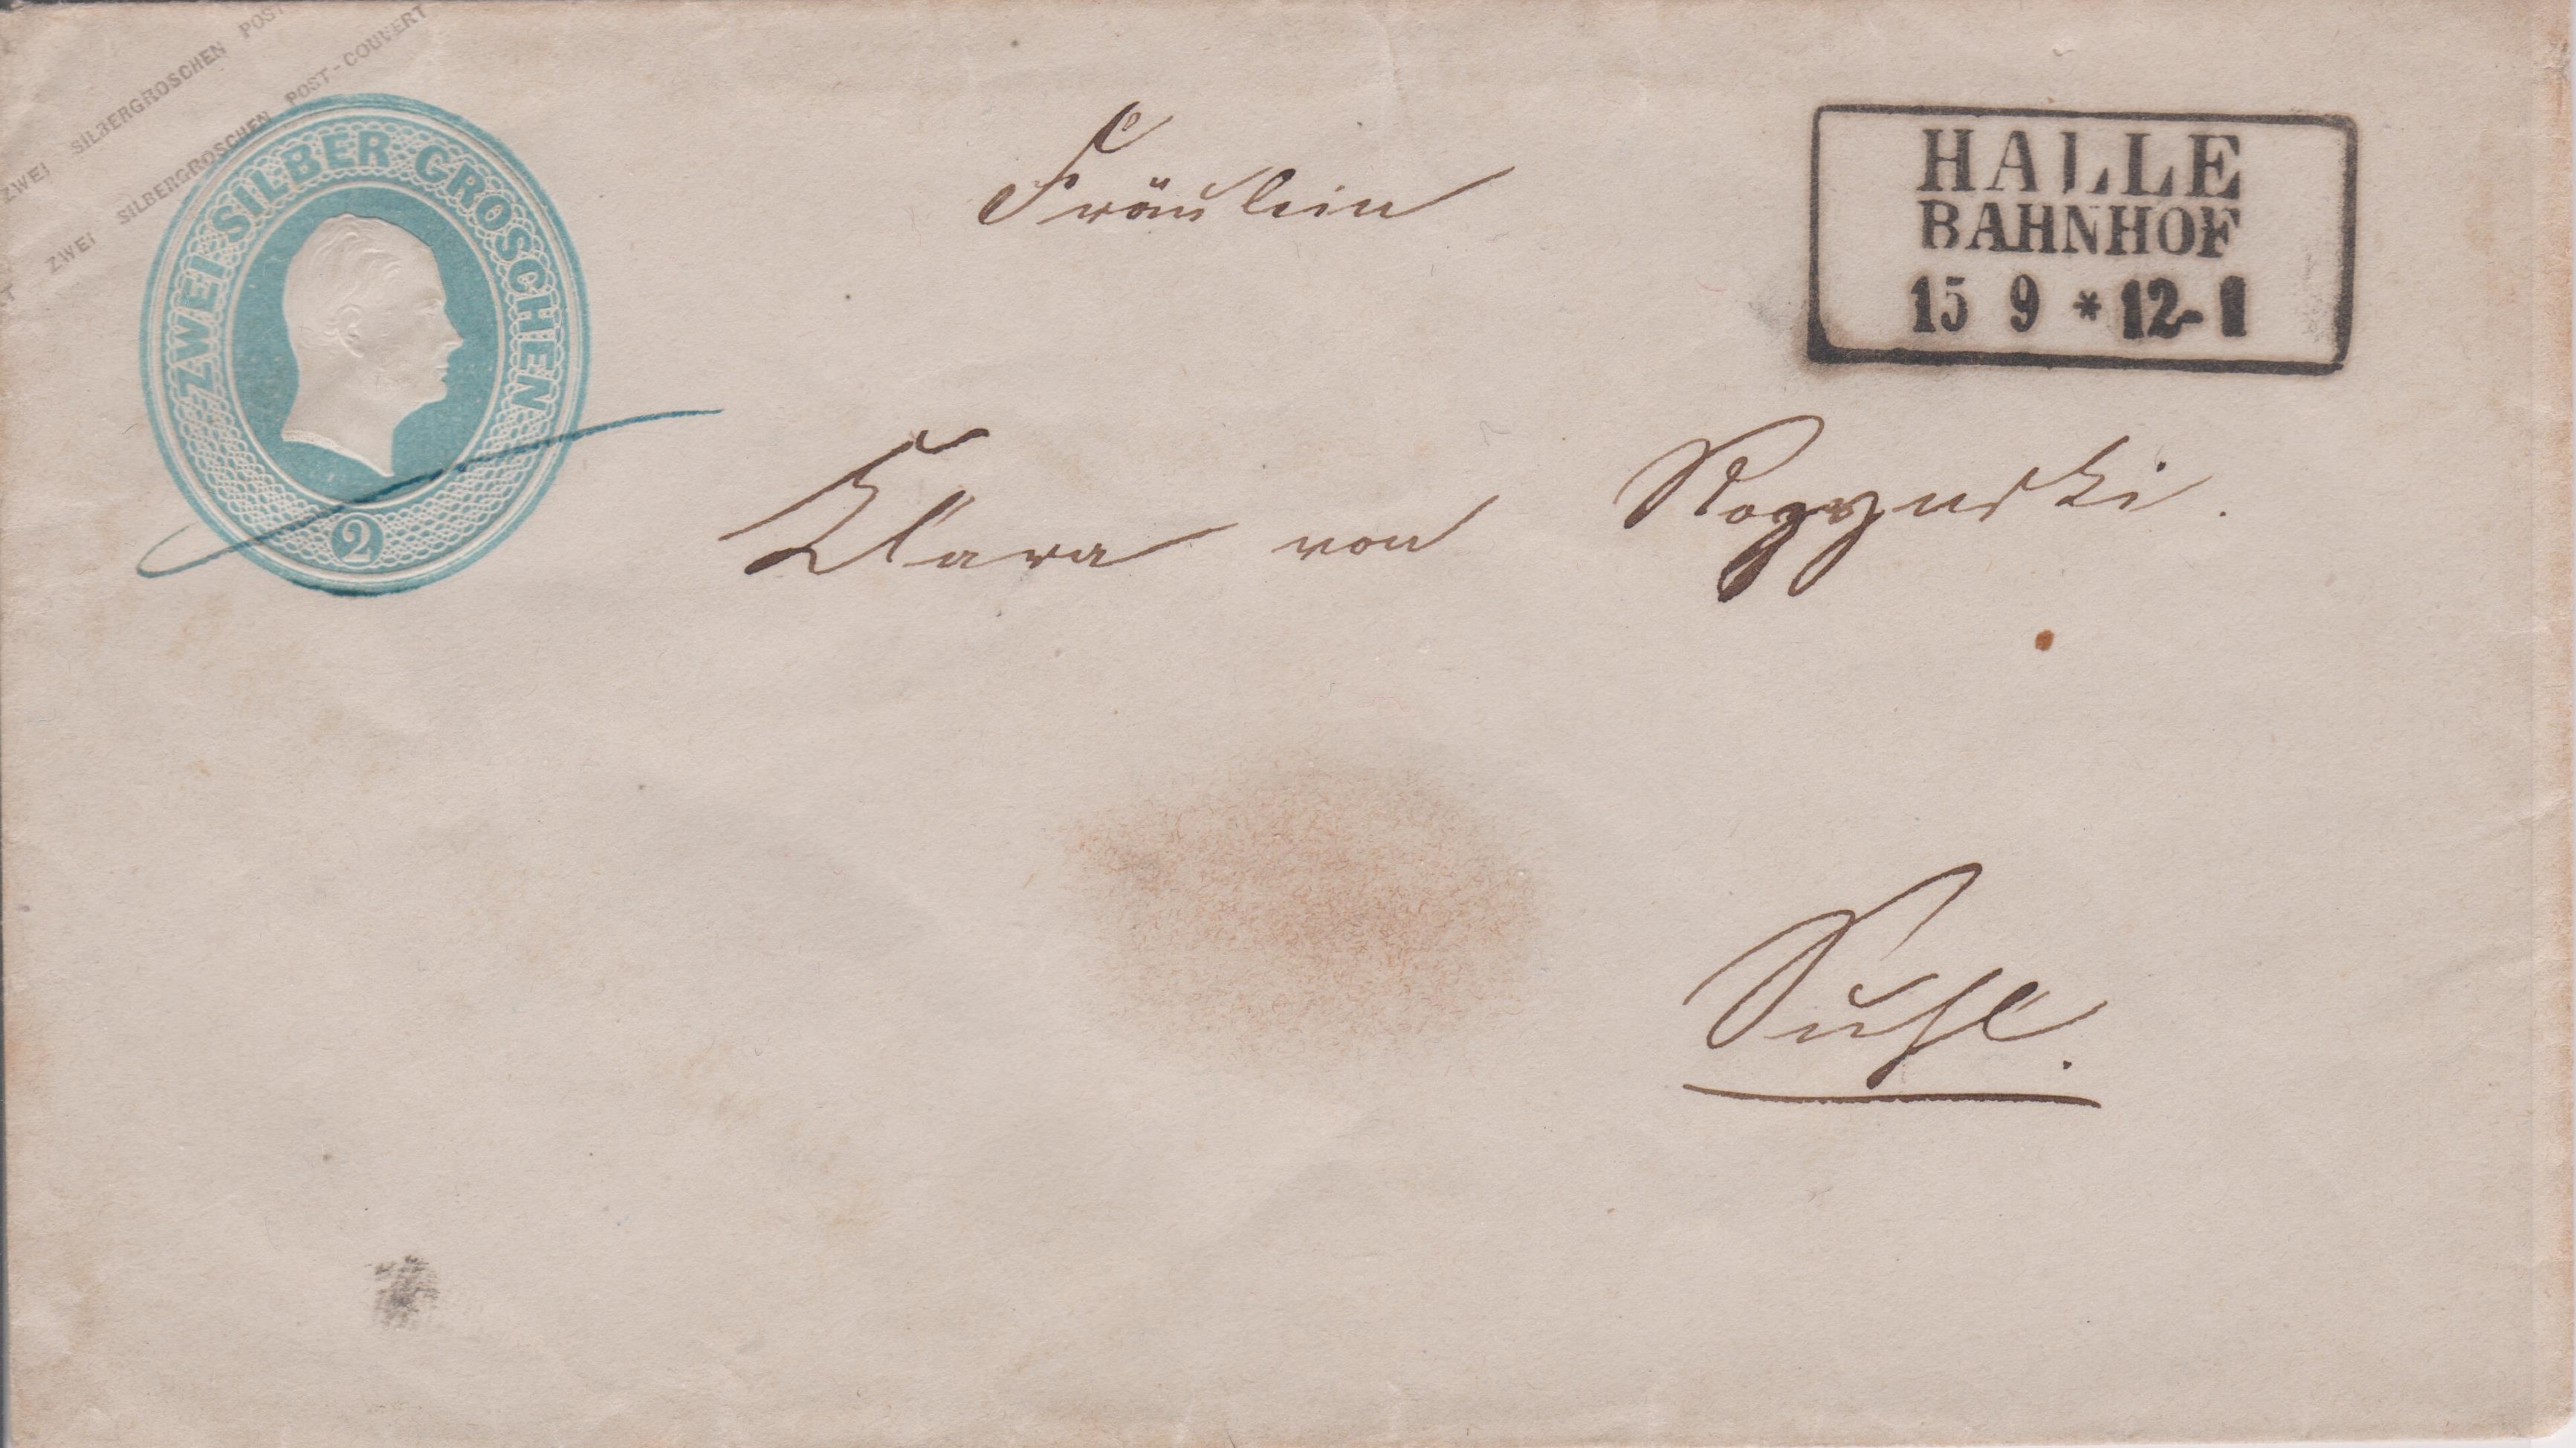 ZWEI SILBERGROSCHEN POST
ZWEI SILBERGROSCHEN POST-COUVERT
ZWEI SILBER GROSCHEN
2
HALLE
BAHNHOF
15 9 * 12-1
Fräulein
Klara von
Suhl.